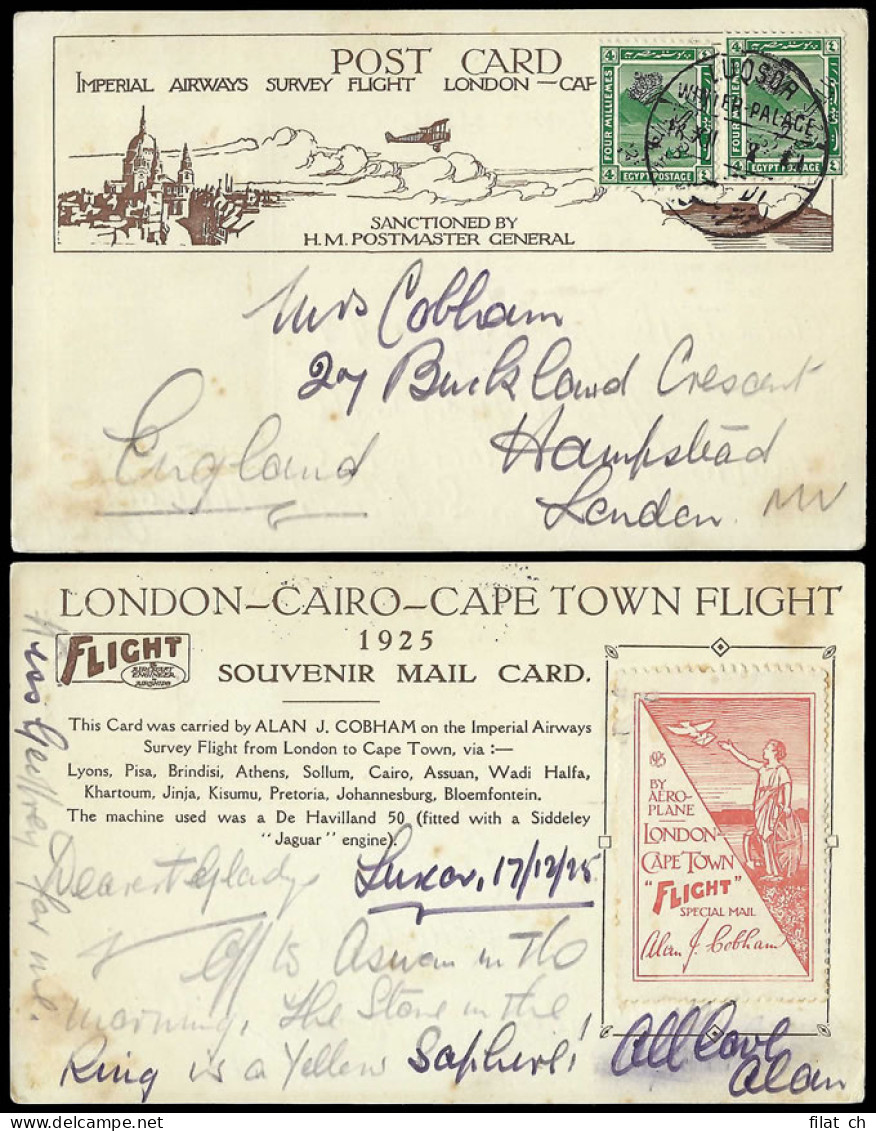 POST CARD
IMPERIAL AIRWAYS SURVEY FLIGHT LONDON—CAP
SANCTIONED BY
H.M. POSTMASTER GENERAL
4 4
FOUR MILLIEMES
4 EGYPT POSTAGE ٤
4 ٤
FOUR MILLIEMES
4 EGYPT POSTAGE ٤
LUQSOR
WINTER-PALACE
Mrs Cobham
27 Buckland Crescent
Hampstead
London.
England
LONDON—CAIRO—CAPE TOWN FLIGHT
1925
SOUVENIR MAIL CARD.
FLIGHT
& AIRCRAFT ENGINEER & AIRSHIPS
This Card was carried by ALAN J. COBHAM on the Imperial Airways
Survey Flight from London to Cape Town, via :—
Lyons, Pisa, Brindisi, Athens, Sollum, Cairo, Assuan, Wadi Halfa,
Khartoum, Jinja, Kisumu, Pretoria, Johannesburg, Bloemfontein.
The machine used was a De Havilland 50 (fitted with a Siddeley
"Jaguar" engine).
1925
BY
AERO-
PLANE
LONDON-
CAPE TOWN
"FLIGHT"
SPECIAL MAIL
Alan J. Cobham
Luxor, 17/12/25
Dearest Gladys
Off to Aswan in the
morning, The Stone in the
Ring is a Yellow Saphire!
All Love
Alan
Kiss Geoffrey for me.
filat ch